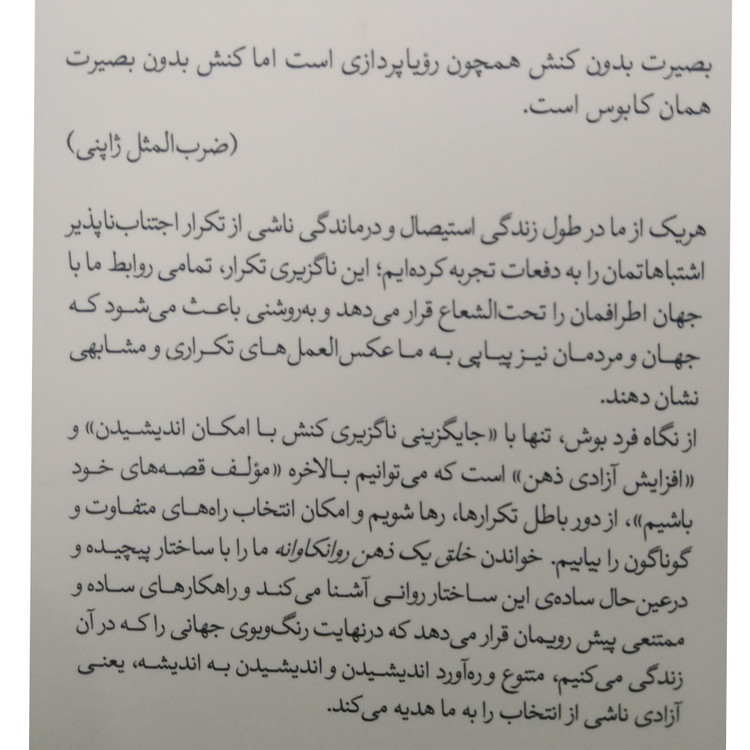 بصیرت بدون کنش همچون رؤیاپردازی است اما کنش بدون بصیرت
همان کابوس است.
(ضرب‌المثل ژاپنی)
هریک از ما در طول زندگی استیصال و درماندگی ناشی از تکرار اجتناب‌ناپذیر
اشتباهاتمان را به دفعات تجربه کرده‌ایم؛ این ناگزیری تکرار، تمامی روابط ما با
جهان اطرافمان را تحت‌الشعاع قرار می‌دهد و به‌روشنی باعث می‌شود که
جهان و مردمان نیز پیاپی به ما عکس‌العمل‌های تکراری و مشابهی
نشان دهند.
از نگاه فرد بوش، تنها با «جایگزینی ناگزیری کنش با امکان اندیشیدن» و
«افزایش آزادی ذهن» است که می‌توانیم بالاخره «مؤلف قصه‌های خود
باشیم»، از دور باطل تکرارها، رها شویم و امکان انتخاب راه‌های متفاوت و
گوناگون را بیابیم. خواندن خلق یک ذهن روانکاوانه ما را با ساختار پیچیده و
درعین‌حال ساده‌ی این ساختار روانی آشنا می‌کند و راهکارهای ساده و
ممتنعی پیش رویمان قرار می‌دهد که درنهایت رنگ‌وبوی جهانی را که در آن
زندگی می‌کنیم، متنوع و ره‌آورد اندیشیدن و اندیشیدن به اندیشه، یعنی
آزادی ناشی از انتخاب را به ما هدیه می‌کند.